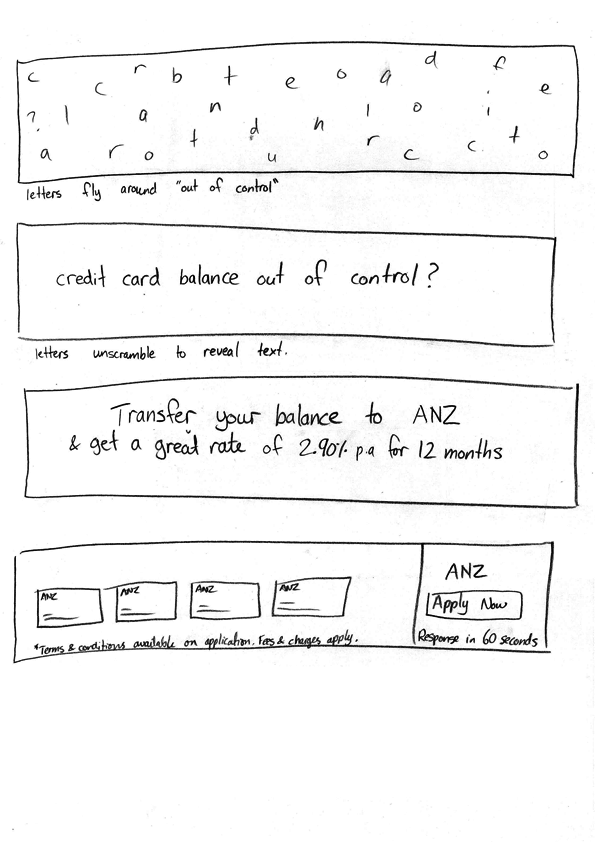 c c r b t e o a d f e
? l a n l o i
a r o t d u n r c c t o
letters fly around "out of control"
credit card balance out of control?
letters unscramble to reveal text.
Transfer your balance to ANZ
& get a great rate of 2.90% p.a for 12 months
ANZ ANZ ANZ ANZ
*Terms & conditions available on application. Fees & charges apply.
ANZ
Apply Now
Response in 60 seconds